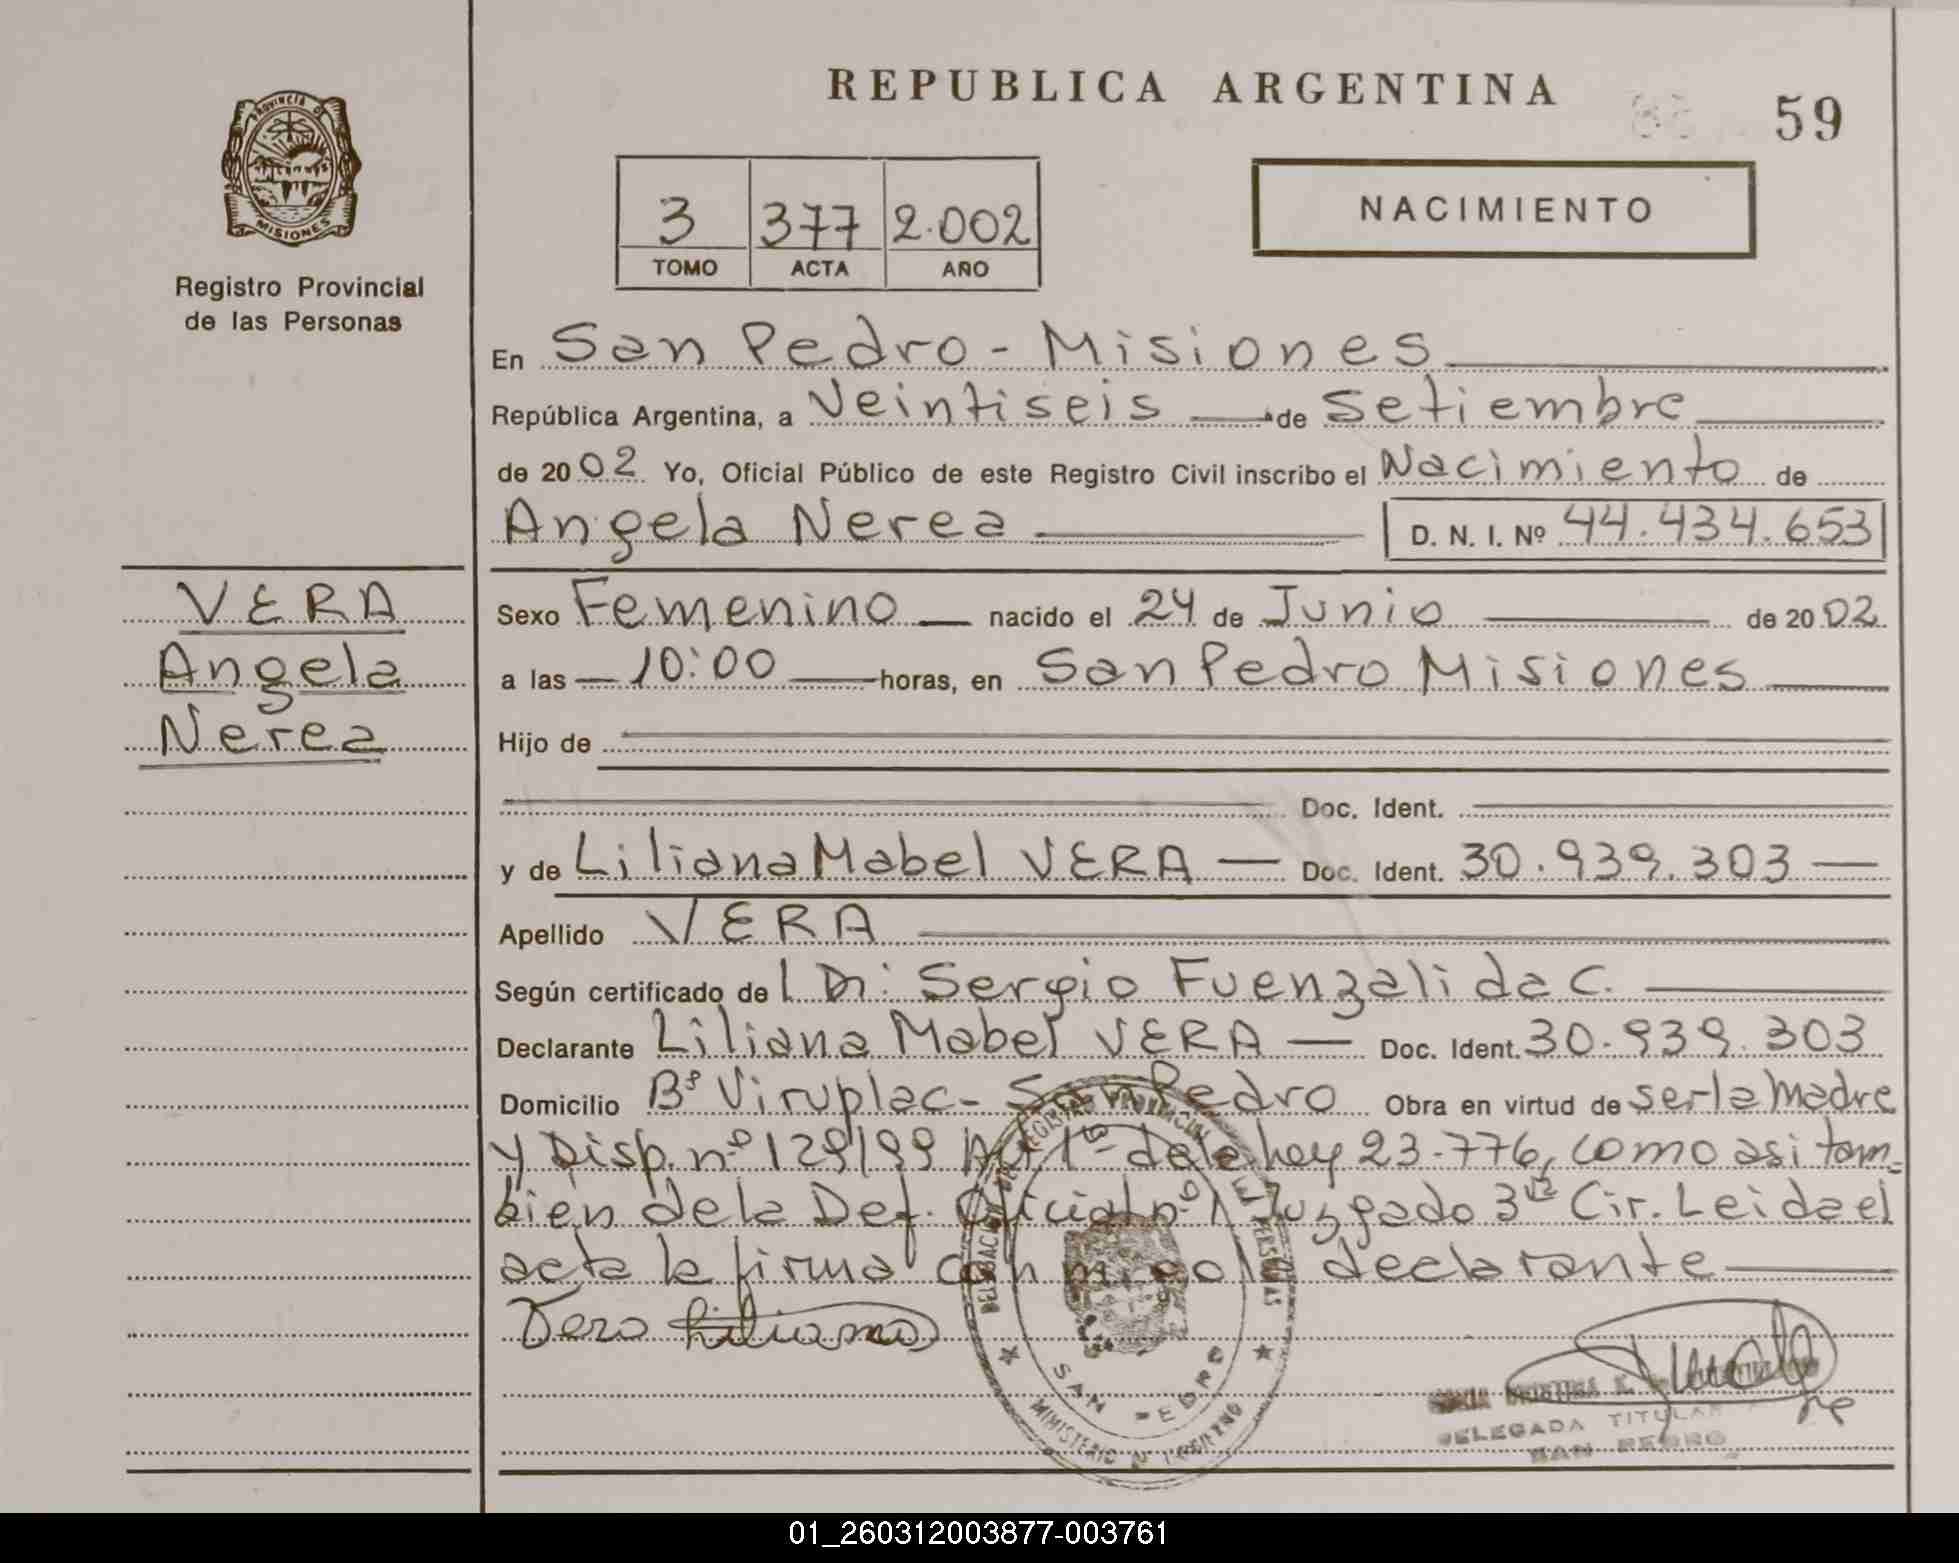 REPUBLICA ARGENTINA
59
PROVINCIA DE
MISIONES
Registro Provincial
de las Personas
3 377 2.002
TOMO ACTA AÑO
NACIMIENTO
En San Pedro - Misiones
República Argentina, a Veintiseis de Setiembre
de 2002 Yo, Oficial Público de este Registro Civil inscribo el Nacimiento de
Angela Nerea D. N. I. Nº 44.434.653
VERA
Angela
Nerea
Sexo Femenino nacido el 24 de Junio de 2002
a las 10:00 horas, en San Pedro Misiones
Hijo de
Doc. Ident.
y de Liliana Mabel VERA Doc. Ident. 30.939.303
Apellido VERA
Según certificado de Sergio Fuenzalida C.
Declarante Liliana Mabel VERA Doc. Ident. 30.939.303
Domicilio Bº Viruplac - San Pedro Obra en virtud de ser la madre
y Disp. nº 129/99 Art 1º de la ley 23.776, como asi tam-
bien de la Def. Oficial nº 1 Juzgado 3ra Cir. Leida el
acta la firma con migo la declarante
Vera Liliana
SAN PEDRO
DELEGADA TITULAR
SAN PEDRO
01_260312003877-003761